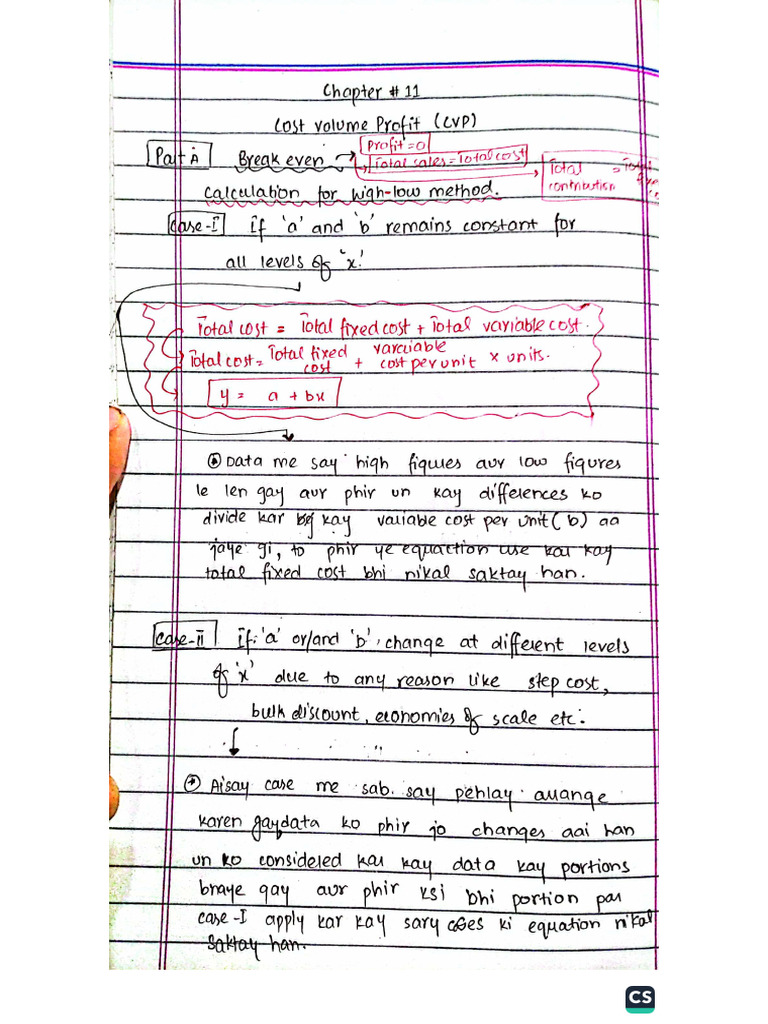 Chapter # 11
Cost volume Profit (CVP)
Profit = 0
Part A Break even
Total sales = Total cost
Total contribution = Total
calculation for high-low method.
Case-I If 'a' and 'b' remains constant for
all levels of 'x'.
Total cost = Total fixed cost + Total variable cost.
Total cost = Total fixed cost + varciable cost per unit x units.
y = a + bx
Data me say high figures aur low figures
le len gay aur phir un kay differences ko
divide kar kay variable cost per unit (b) aa
jaye gi, to phir ye equaction use kar kay
total fixed cost bhi nikal saktay han.
Case-II If 'a' or/and 'b', change at different levels
of 'x' due to any reason like step cost,
bulk discount, economies of scale etc.
Aisay case me sab say pehlay arrange
karen gay data ko phir jo changes aai han
un ko considered kar kay data kay portions
bnaye gay aur phir ksi bhi portion par
case-I apply kar kay sary ki equation nikal
saktay han.
CS